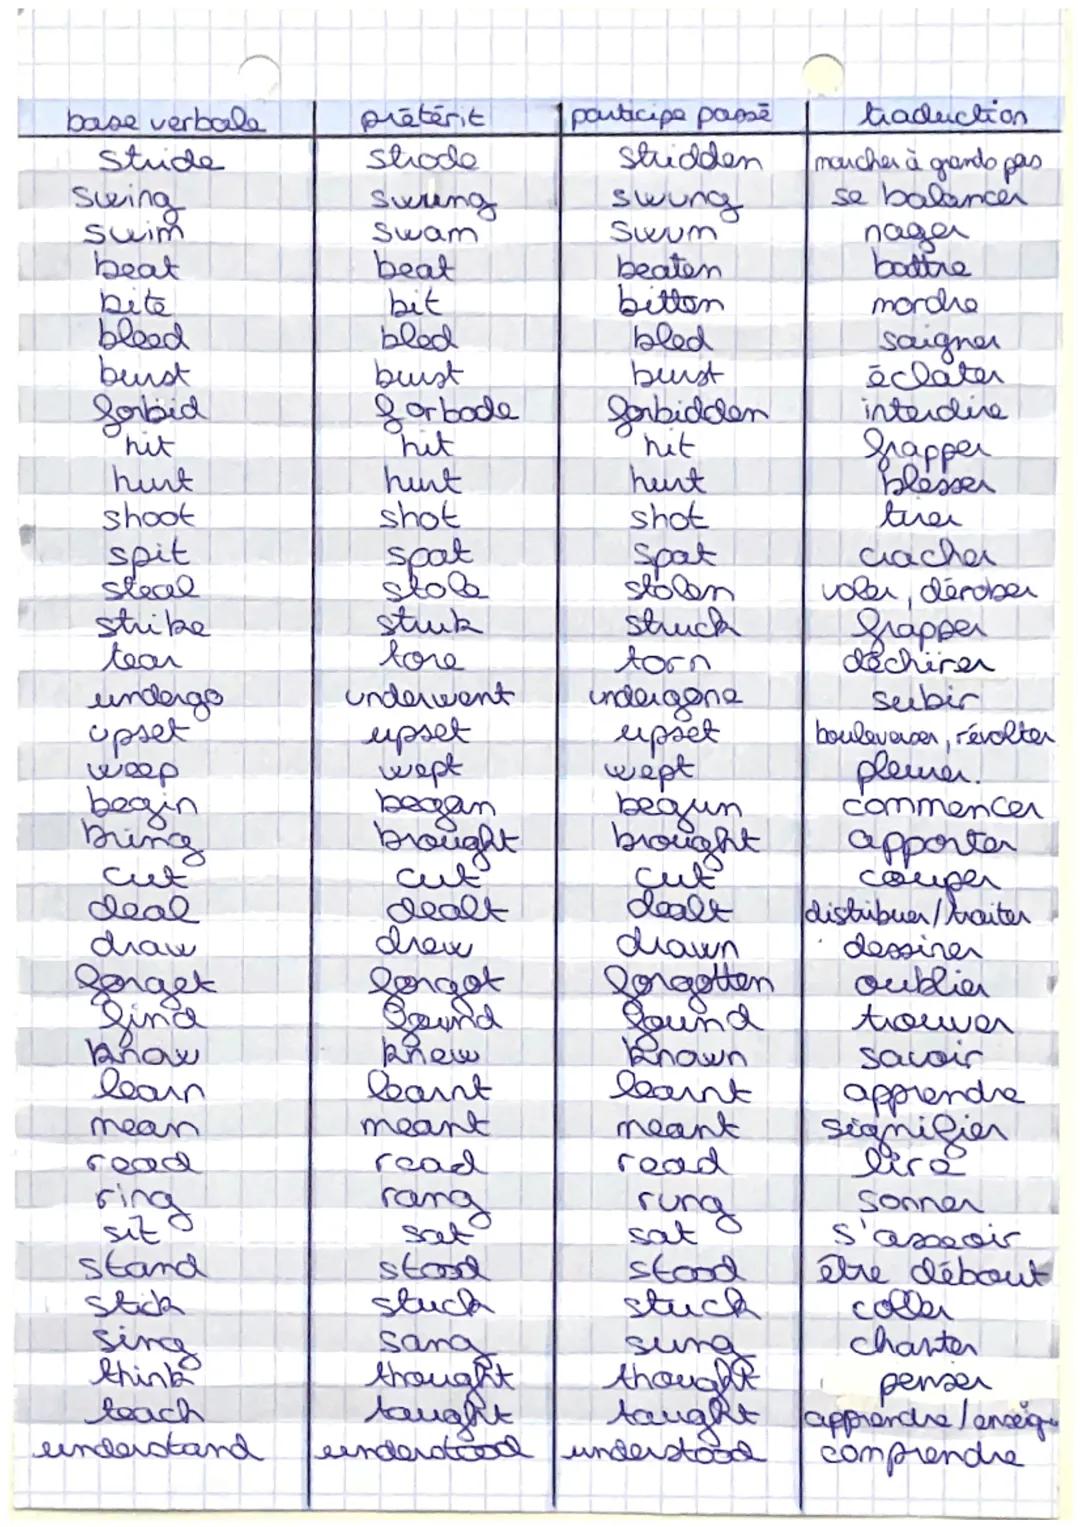 base verbale prétérit participe passé traduction
stride strode stridden marcher à grands pas
swing swung swung se balancer
swim swam swum nager
beat beat beaten battre
bite bit bitten mordre
bleed bled bled saigner
burst burst burst éclater
forbid forbade forbidden interdire
hit hit hit frapper
hurt hurt hurt blesser
shoot shot shot tirer
spit spat spat cracher
steal stole stolen voler, dérober
strike struk struck frapper
tear tore torn déchirer
undergo underwent undergone subir
upset upset upset bouleverser, révolter
weep wept wept pleurer.
begin began begun commencer
bring brought brought apporter
cut cut cut couper
deal dealt dealt distribuer/traiter
draw drew drawn dessiner
forget forgot forgotten oublier
find found found trouver
know knew known savoir
learn learnt learnt apprendre
mean meant meant signifier
read read read lire
ring rang rung sonner
sit sat sat s'asseoir
stand stood stood être débout
stick stuck stuck coller
sing sang sung chanter
think thought thought penser
teach taught taught apprendre/enseign
understand understood understood comprendre